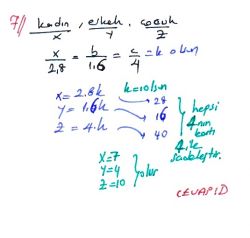 7// kadın, erkek, çocuk
x y z
x/2,8 = b/1,6 = c/4 = k olsun
x = 2.8k k=10 olsun
y = 1,6k 28
z = 4.k 16
40
hepsi 4'nın katı
4 ile sadeleştir.
x=7
y=4
z=10 olur
CEVAP D